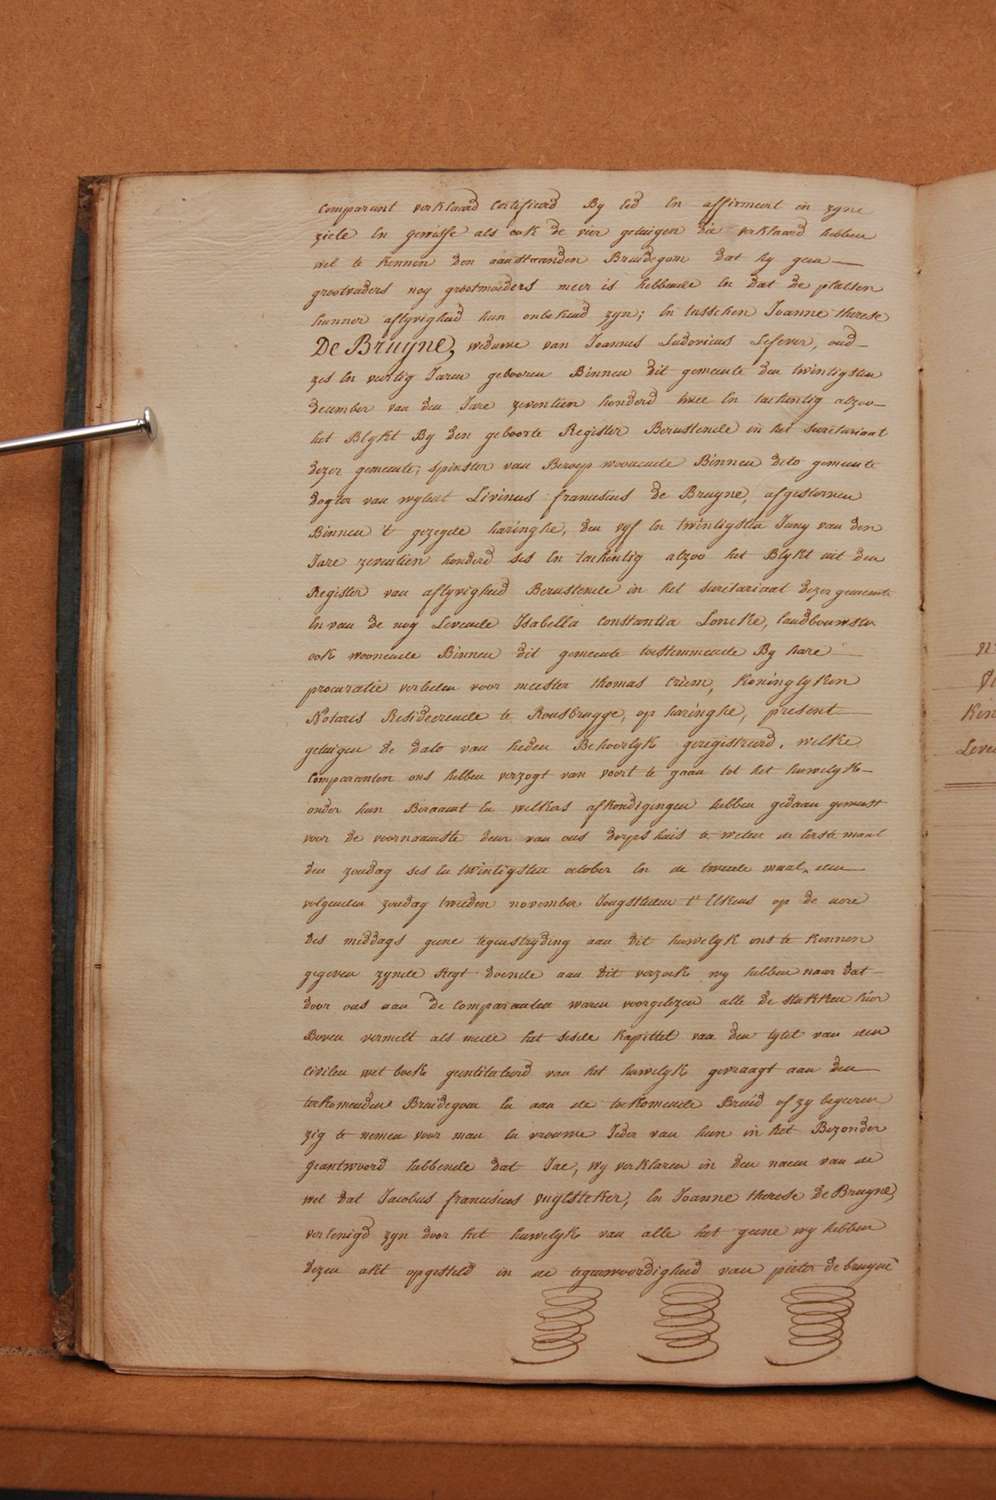 Comparant verklaard Certifieerd By Eed En affirmeert in zyne
ziele En gewisse als ook de vier getuigen die verklaard hebben
wel te kennen den aanstaanden Bruidegom dat hy geen
grootvaders nog grootmoeders meer is hebbende En dat de platsen
hunner aflyvigheid hun onbekend zyn; En tusschen Joanne therese
De Bruyne, weduwe van Joannes Ludovicus Lefever, oud
zes En veertig Jaren gebooren Binnen dit gemeente den twintigsten
december van den Jare zeventien honderd twee En tachentig alzoo
het Blykt By den geboorte Register Berustende in het Secretariaat
dezer gemeente; spinster van Beroep woonende Binnen dito gemeente
dogter van wylent Livinus franciscus de Bruyne, afgestorven
Binnen 't gezegde haringhe, den vyf En twintigsten Juny van den
Jare zeventien honderd ses En tachentig alzoo het Blykt uit den
Register van aflyvigheid Berustende in het Secretariaat dezer gemeente
En van de nog Levende Isabella Constantia Loncke, landbouwster
ook woonende Binnen dit gemeente toestemmende By hare
procuratie verleden voor meester thomas Criem, Koninglyken
Notaris Resideerende te Rousbrugge, op haringhe, present
getuigen de dato van heden Behoorlyk geregistreerd, welke
Comparanten ons hebben verzogt van voort te gaan tot het huwelyk
onder hun Beraamt En welkers afkondigingen hebben gedaan geweest
voor de voornaamste deur van ons dorps huis te weten de Eerste maal
den zondag ses En twintigsten october En de tweede maal den
volgenden zondag tweeden november Jongstleden t' Elkens op de uere
des middags geene tegenstryding aan dit huwelyk ons te kennen
gegeven zynde Regt doende aan dit verzoek wy hebben naer dat
door ons aan de Comparanten waren voorgelezen alle de stukken hier
Boven vermelt als mede het sesde kapittel van den tytel van den
Civilen wet boek geentituleerd van het huwelyk gevraagt aan den
toekomenden Bruidegom En aan de toekomende Bruid of zy begeeren
zig te nemen voor man En vrouwe Ieder van hun in het Bezonder
geantwoord hebbende dat Jae, wy verklaren in den naem van de
wet dat Jacobus franciscus vuylsteker, En Joanne therese De Bruyne,
verEenigd zyn door het huwelyk van alle het geene wy hebben
dezen akt opgesteld in de tegenwoordigheid van pieter de bruyne